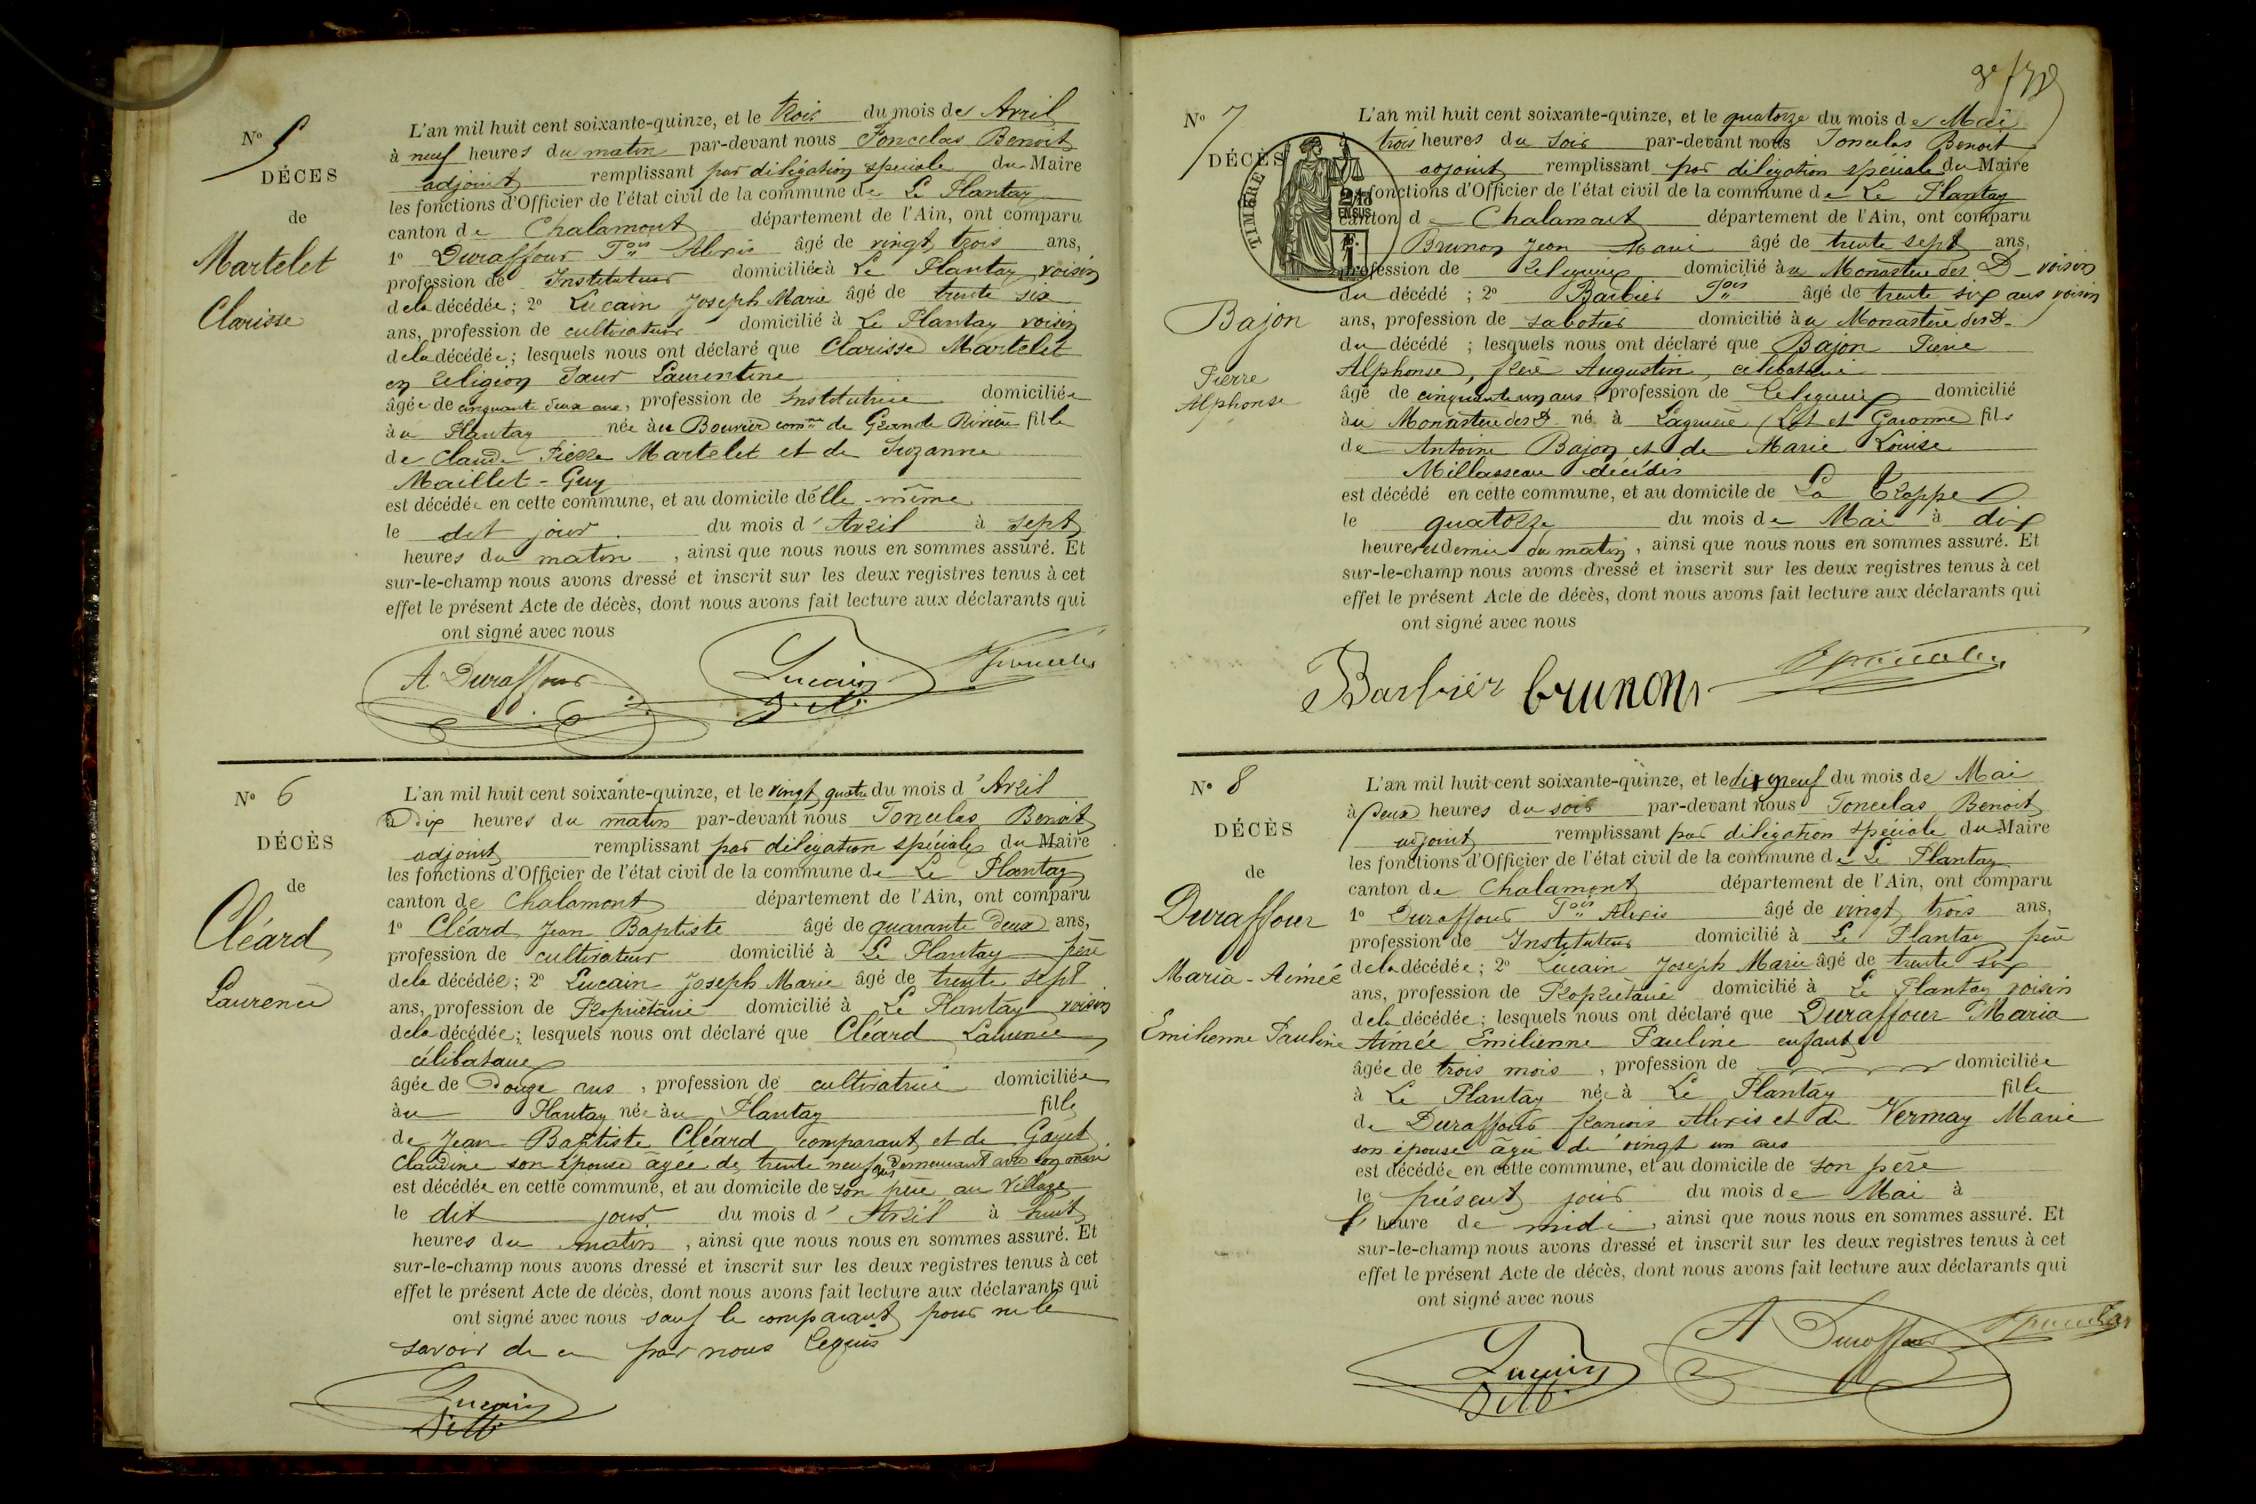 N° 5
DÉCES
de
Martelet
Clarisse
L'an mil huit cent soixante-quinze, et le trois du mois de Avril
à neuf heures du matin par-devant nous Fonculas Benoit
adjoint remplissant par délégation spéciale du Maire
les fonctions d'Officier de l'état civil de la commune de Le Plantay
canton de Chalamont département de l'Ain, ont comparu
1° Duraffour Fois Alexis âgé de vingt trois ans,
profession de Instituteur domicilié à Le Plantay voisin
de la décédée; 2° Lucain Joseph Marie âgé de trente six
ans, profession de cultivateur domicilié à Le Plantay voisin
de la décédée; lesquels nous ont déclaré que Clarisse Martelet
en religion Sœur Laurentine
âgée de cinquante deux ans, profession de Institutrice domiciliée
à u Plantay née à u Bouvier comne de Grande Rivière fille
de Claude Pierre Martelet et de Suzanne
Maillet-Guy
est décédée en cette commune, et au domicile d'elle-même
le dit jour du mois d'Avril à sept
heures du matin, ainsi que nous nous en sommes assuré. Et
sur-le-champ nous avons dressé et inscrit sur les deux registres tenus à cet
effet le présent Acte de décès, dont nous avons fait lecture aux déclarants qui
ont signé avec nous
A Duraffour Lucain
N° 6
DÉCÈS
de
Cléard
Laurence
L'an mil huit cent soixante-quinze, et le vingt quatre du mois d'Avril
à Dix heures du matin par-devant nous Fonculas Benoit
adjoint remplissant par délégation spéciale du Maire
les fonctions d'Officier de l'état civil de la commune de Le Plantay
canton de Chalamont département de l'Ain, ont comparu
1° Cléard Jean Baptiste âgé de quarante Deux ans,
profession de cultivateur domicilié à Le Plantay père
de la décédée; 2° Lucain Joseph Marie âgé de trente sept
ans, profession de Propriétaire domicilié à Le Plantay voisin
de la décédée; lesquels nous ont déclaré que Cléard Laurence
célibataire
âgée de Douze ans, profession de cultivatrice domiciliée
à u Plantay née à u Plantay fille
de Jean Baptiste Cléard comparant et de Gayet
Claudine son épouse âgée de trente neuf ans Demeurant avec son mari
est décédée en cette commune, et au domicile de son père au Village
le dit jour du mois d'Avril à huit
heures du matin, ainsi que nous nous en sommes assuré. Et
sur-le-champ nous avons dressé et inscrit sur les deux registres tenus à cet
effet le présent Acte de décès, dont nous avons fait lecture aux déclarants qui
ont signé avec nous sauf le comparant pour ne le
savoir de ce par nous requis
Lucain
N° 7
DÉCÈS
TIMBRE
EN SUS
Bajon
Pierre
Alphonse
L'an mil huit cent soixante-quinze, et le quatorze du mois de Mai
à trois heures du soir par-devant nous Fonculas Benoit
adjoint remplissant par délégation spéciale du Maire
les fonctions d'Officier de l'état civil de la commune de Le Plantay
canton de Chalamont département de l'Ain, ont comparu
Brunon Jean Marie âgé de trente sept ans,
profession de Religieux domicilié à u Monastère des D- voisin
du décédé; 2° Barbier Fois âgé de trente six ans voisin
ans, profession de sabotier domicilié à u Monastère des D-
du décédé; lesquels nous ont déclaré que Bajon Pierre
Alphonse, frère Augustin, célibataire
âgé de cinquante un ans, profession de Religieux domicilié
à u Monastère des D né à Lagruère (Lot et Garonne) fils
de Antoine Bajon et de Marie Louise
Millasseau décédés
est décédé en cette commune, et au domicile de La Trappe
le quatorze du mois de Mai à dix
heures et demie du matin, ainsi que nous nous en sommes assuré. Et
sur-le-champ nous avons dressé et inscrit sur les deux registres tenus à cet
effet le présent Acte de décès, dont nous avons fait lecture aux déclarants qui
ont signé avec nous
Barbier brunon
N° 8
DÉCÈS
de
Duraffour
Maria-Aimée
Emilienne Pauline
L'an mil huit cent soixante-quinze, et le dix neuf du mois de Mai
à Deux heures du soir par-devant nous Fonculas Benoit
adjoint remplissant par délégation spéciale du Maire
les fonctions d'Officier de l'état civil de la commune de Le Plantay
canton de Chalamont département de l'Ain, ont comparu
1° Duraffour Fois Alexis âgé de vingt trois ans,
profession de Instituteur domicilié à Le Plantay père
de la décédée; 2° Lucain Joseph Marie âgé de trente six
ans, profession de Propriétaire domicilié à Le Plantay voisin
de la décédée; lesquels nous ont déclaré que Duraffour Maria
Aimée Emilienne Pauline enfant
âgée de trois mois, profession de domiciliée
à Le Plantay née à Le Plantay fille
de Duraffour francois Alexis et de Vermay Marie
son épouse âgée de vingt un ans
est décédée en cette commune, et au domicile de son père
le présent jour du mois de Mai à
l'heure de midi, ainsi que nous nous en sommes assuré. Et
sur-le-champ nous avons dressé et inscrit sur les deux registres tenus à cet
effet le présent Acte de décès, dont nous avons fait lecture aux déclarants qui
ont signé avec nous
Lucain A Duraffour